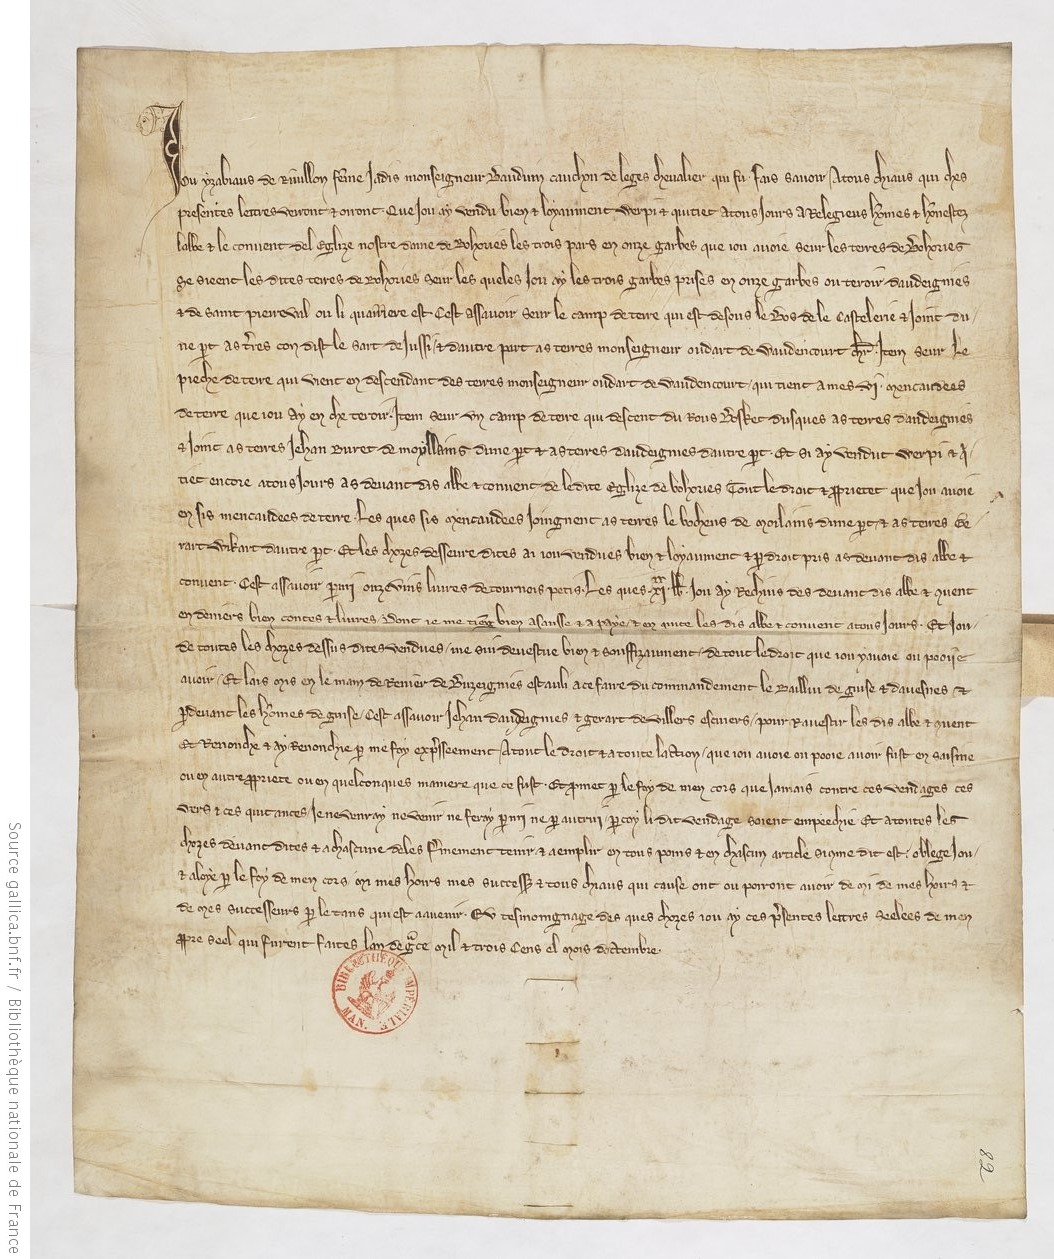 Jou yzabiaus de Rivillon feme Jadis monseigneur Bauduin cauchon de leges chevalier qui fu. fais savoir Atous chiaus qui ches
presentes lettres verront & oiront. Que Jou ay vendu bien & loyaument werpi & quitiet Atous Jours A Relegieus homes & honestez
labbe & le convent del Eglize nostre dame de Bohories les trois pars en onze garbes que iou avoie seur les terres de Bohories
Se sieent les dites terres de Bohories seur les queles Jou ay les trois garbes prises en onze garbes ou teroir daudeignies
& de saint pierreval ou li quariere est Cest assavoir seur le camp de terre qui est desous le Bos de le Castelerie & Joint du/
ne part as teres con dist le sart de Jussi / & dautre part as terres monseigneur oudart de vaudencourt chr. Item seur Le
pieche de terre qui vient en descendant des terres monseigneur oudart de vaudencourt / qui tient A mes vi. mencaudees
de terre que iou Ay en che teroir. Item seur un camp de terre qui descent du Rous Bosket dusques as terres daudeignies
& Joint as terres Jehan Buret de moyllains dune part & as terres daudeignies dautre part. Et si Ay vendut werpi & q/
tiet encore atous Jours as devant dis abbe & convent de ledite Eglize de bohories Tout le droit & pprietet que Jou avoie
en sis mencaudees de terre. Les ques sis mencaudees Joingnent as terres le bochens de Moilains dune part / & as terres Ge
rart wikart dautre part. Et les chozes desseure dites ai iou vendues bien & loyaument & p droit pris as devant dis abbe &
convent. Cest assavoir parmi onze vins livres de tournois petis. Les ques .xi. lb. Jou Ay Rechius des devant dis abbe & convent
en deniers bien contes & livres / dont ie me tieng bien asausse & a paye / & en quite les dis abbe & convent atous Jours. Et Jou /
de toutes les chozes dessus dites vendues / me sui devestue bien & souffizaument / de tout le droit que iou y avoie ou pooie
avoir / Et lais mis en le main de Renier de Buzeignies estauli a ce faire du commandement le Bailliu de guise & davesnes &
pdevant les homes de guise / Cest assavoir Jehan daudeignies & gerart de villers escuiers / pour Ravestir les dis abbe & convent
Et Renonche & ay Renonchie p me foy expressement / Atout le droit & a toute laction / que iou avoie ou pooie avoir fust en saisine
ou en autre ppriete ou en quelconques maniere que ce fust. Et pmet p le foy de men cors que Jamais contre ces vendages ces
vers & ces quitances Je ne venray ne venir ne feray par mi ne par autrui / par coy li dit vendage soient empeechie Et a toutes les
chozes devant dites & a chascune deles fermement tenir / & aemplir en tous poins & en chascun article si come dit est / oblege Jou /
& aloye p le foy de men cors mi mes hoirs mes success & tous chiaus qui cause ont ou poiront avoir de mi de mes hoirs &
de mes successeurs p le tans qui est aavenir. En tesmoingnage des ques chozes iou ay ces presentes lettres seelees de men
ppre seel qui furent faites lan de grace mil & trois Cens el mois doctembre.
BIBLIOTHÈQUE IMPÉRIALE
MAN.
82
Source gallica.bnf.fr / Bibliothèque nationale de France